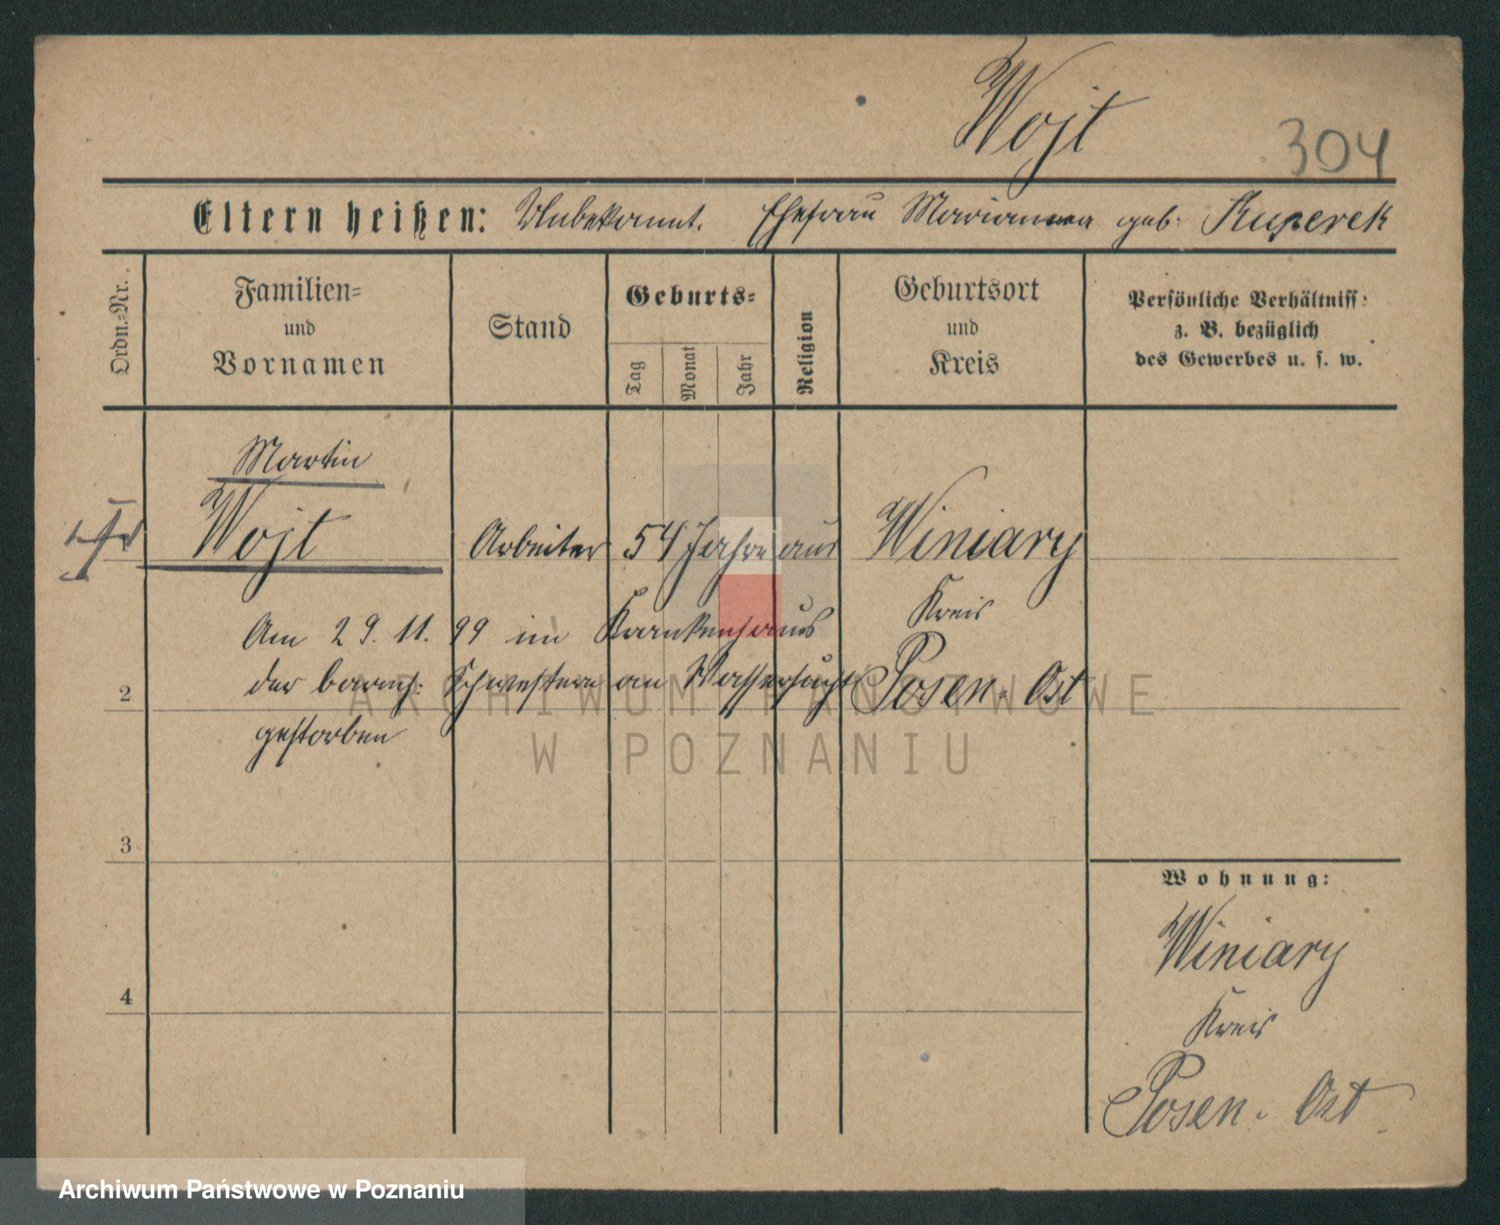 Wojt
304
Eltern heißen: Unbekannt. Ehefrau Marianna geb: Kuperek
Ordn.=Nr.
Familien=
und
Vornamen
Stand
Geburts=
Tag
Monat
Jahr
Religion
Geburtsort
und
Kreis
Persönliche Verhältniss:
z. B. bezüglich
des Gewerbes u. s. w.
Martin
Wojt Arbeiter 54 Jahre aus Winiary
Kreis
Am 29. 11. 99 im Krankenhaus
2 der barmh: Schwestern an Wassersucht Posen-Ost
gestorben
3
4
Wohnung:
Winiary
Kreis
Posen-Ost
ARCHIWUM PAŃSTWOWE
W POZNANIU
Archiwum Państwowe w Poznaniu